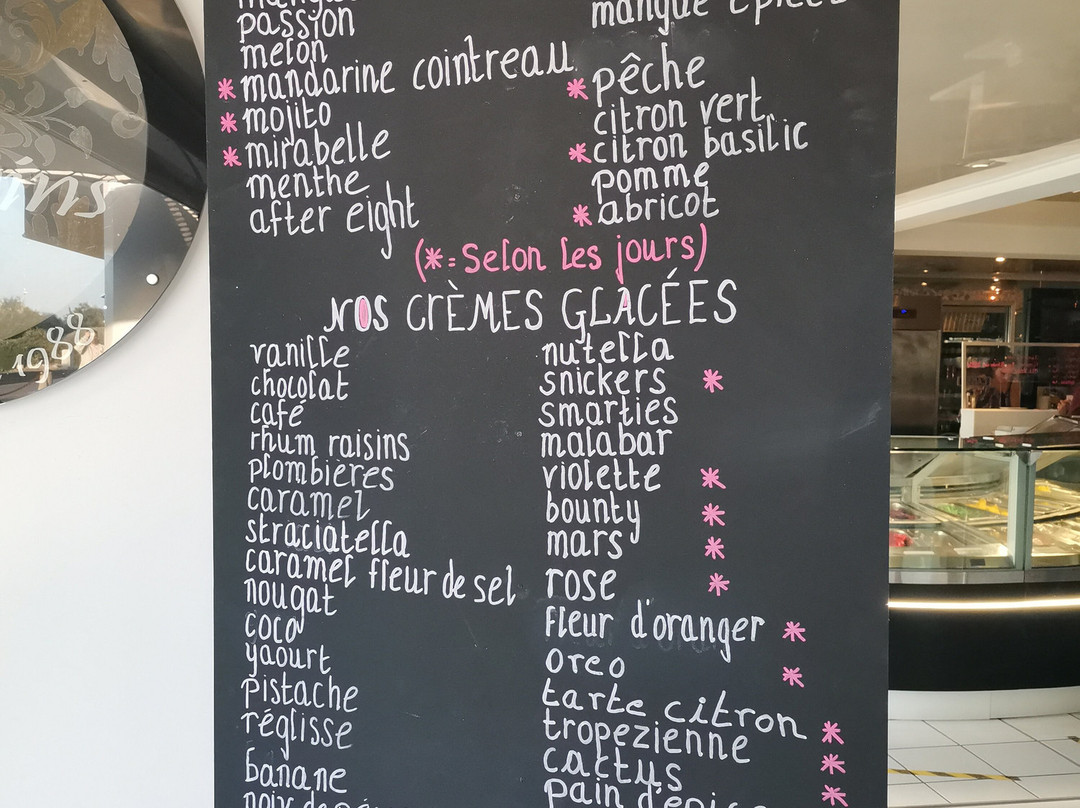 passion
melon
* mandarine cointreau
* mojito
* mirabelle
menthe
after eight
mangue épicée
* pêche
citron vert
* citron basilic
pomme
* abricot
(* = Selon les jours)
NOS CRÈMES GLACÉES
vanille
chocolat
café
rhum raisins
plombières
caramel
straciatella
caramel fleur de sel
nougat
coco
yaourt
pistache
réglisse
banane
nutella
snickers *
smarties
malabar
violette *
bounty *
mars *
rose *
fleur d'oranger *
oreo *
tarte citron *
tropezienne *
cactus *
pain d'épice
1988